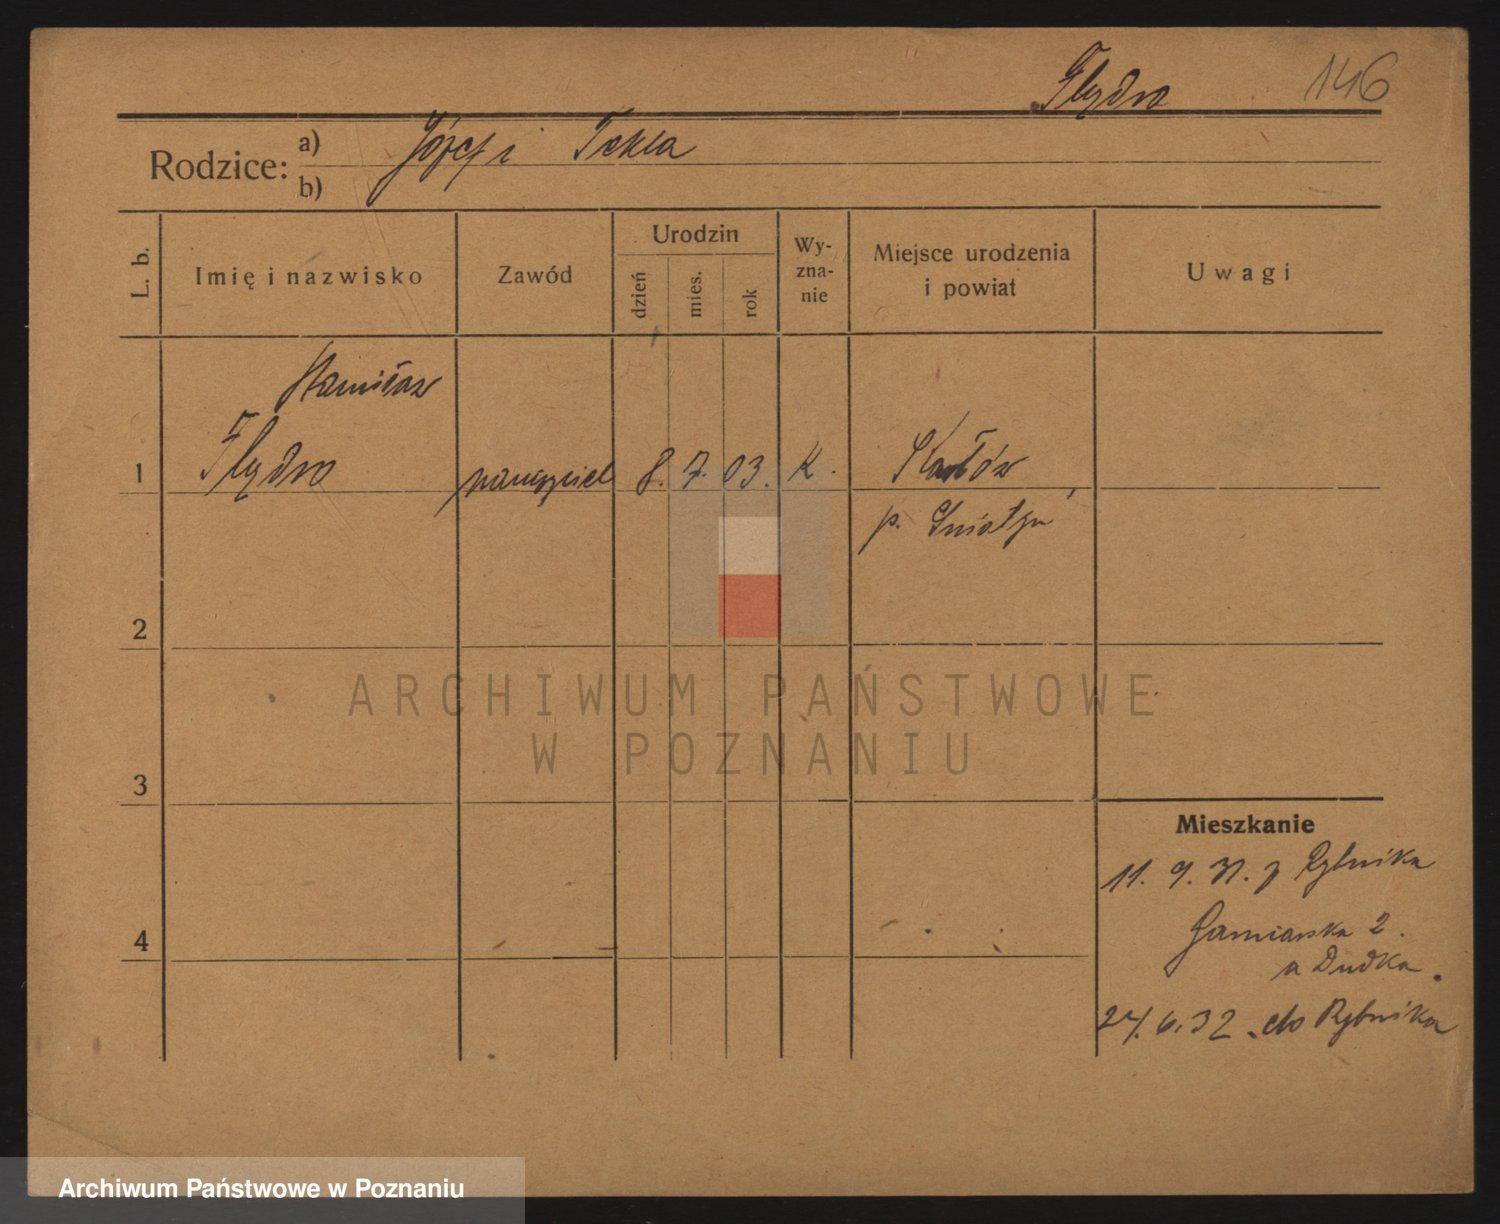 146
Rodzice: a) Józef i Tekla
b)
L. b.
Imię i nazwisko
Zawód
Urodzin
dzień
mies.
rok
Wy-
zna-
nie
Miejsce urodzenia
i powiat
Uwagi
Stanisław
1 nauczyciel 8. 7. 03. K. Karłów
p. Śniatyń
2
3
4
Mieszkanie
11. 9. 31. z Rybnika
Garncarska 2.
u Dudka.
27.6.32 do Rybnika
ARCHIWUM PAŃSTWOWE
W POZNANIU
Archiwum Państwowe w Poznaniu